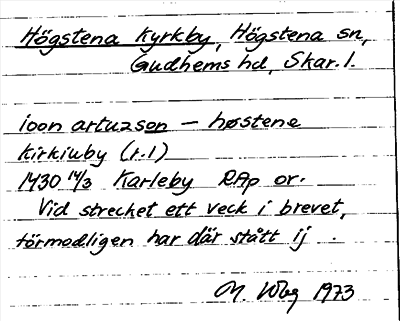 Högstena Kyrkby, Högstena sn,
Gudhems hd, Skar. l.
ioon artuzson — høstene
kirkiuby (r. 1)
1430 14/3 Karleby RAp or.
Vid strecket ett veck i brevet,
törmodligen har där stått ij.
M. Wbg 1973